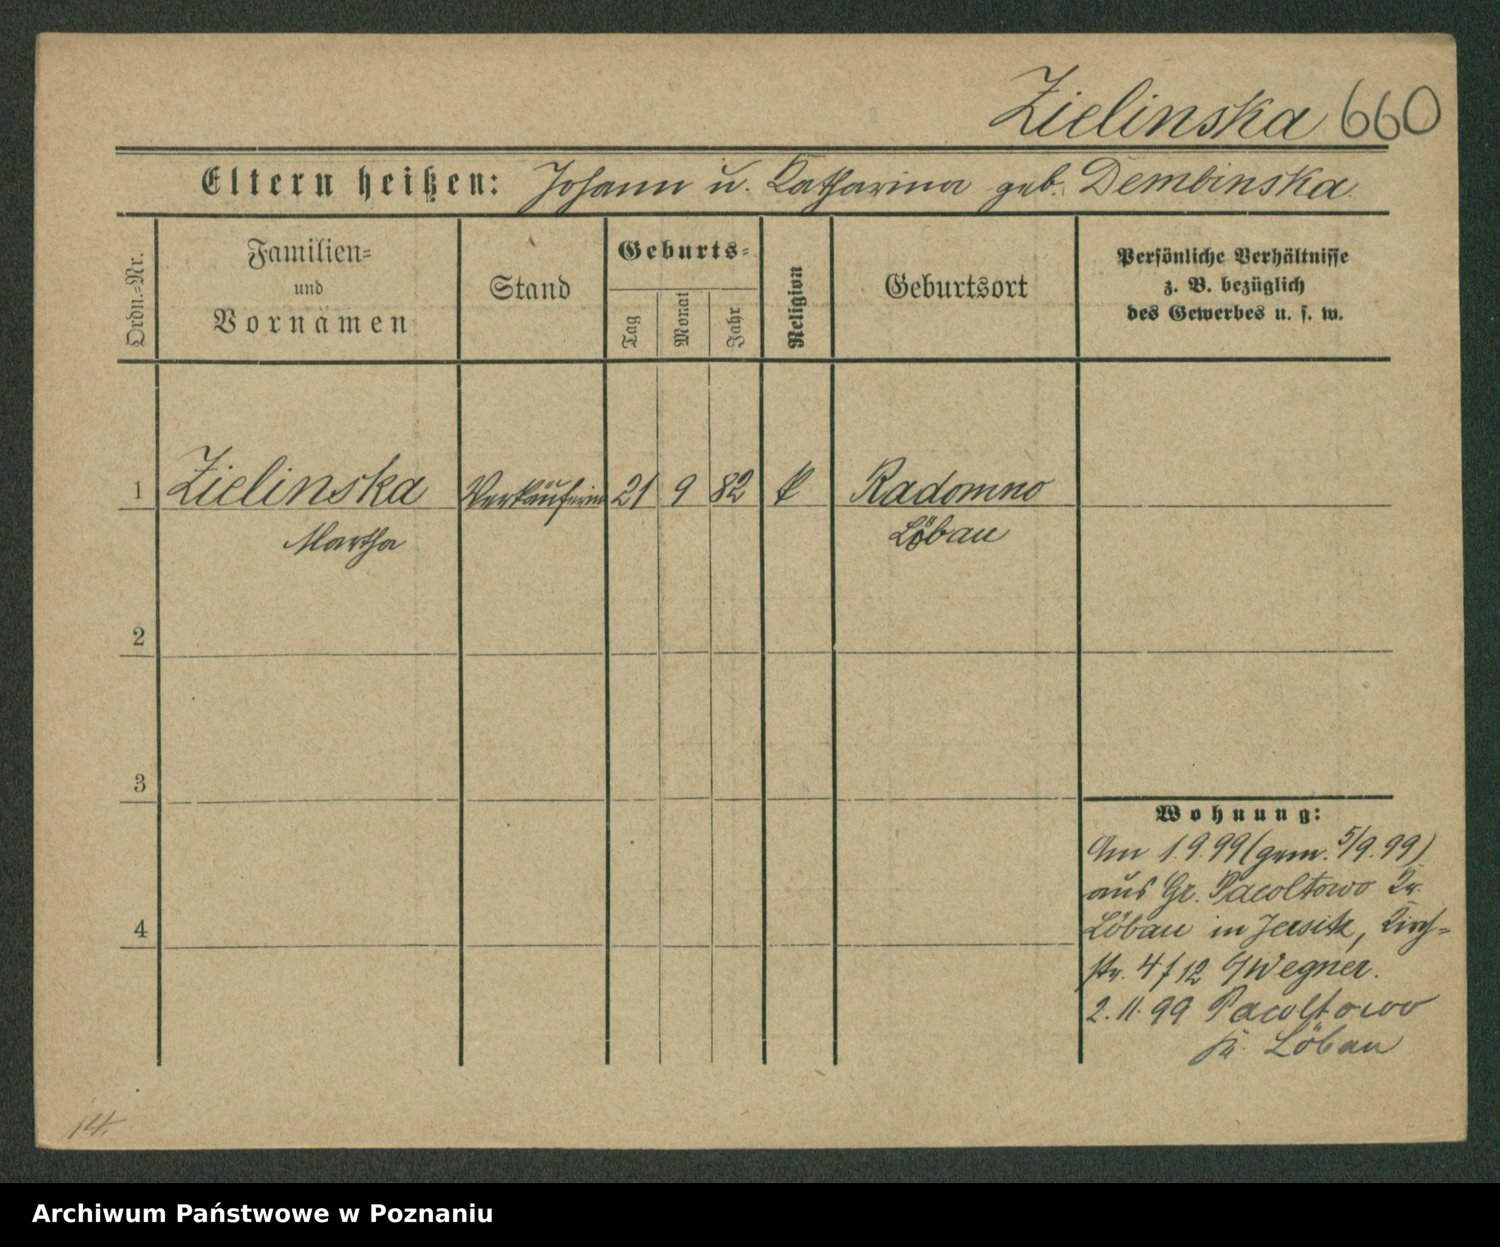 Zielinska 660
Eltern heißen: Johann u. Katharina geb. Dembinska.
Ordn.-Nr.
Familien-
und
Vornamen
Stand
Geburts-
Tag
Monat
Jahr
Religion
Geburtsort
Persönliche Verhältnisse
z. B. bezüglich
des Gewerbes u. s. w.
1 Zielinska Verkäuferin 21 9 82 k Radomno
Martha Löbau
2
3
4
Wohnung:
Am 1.9.99 (gem. 5/9.99)
aus Gr. Pacoltowo Kr.
Löbau in Jersitz, Kirch-
str. 4 f 12 b/Wegner.
2.11.99 Pacoltowo
Kr. Löbau
14.
Archiwum Państwowe w Poznaniu